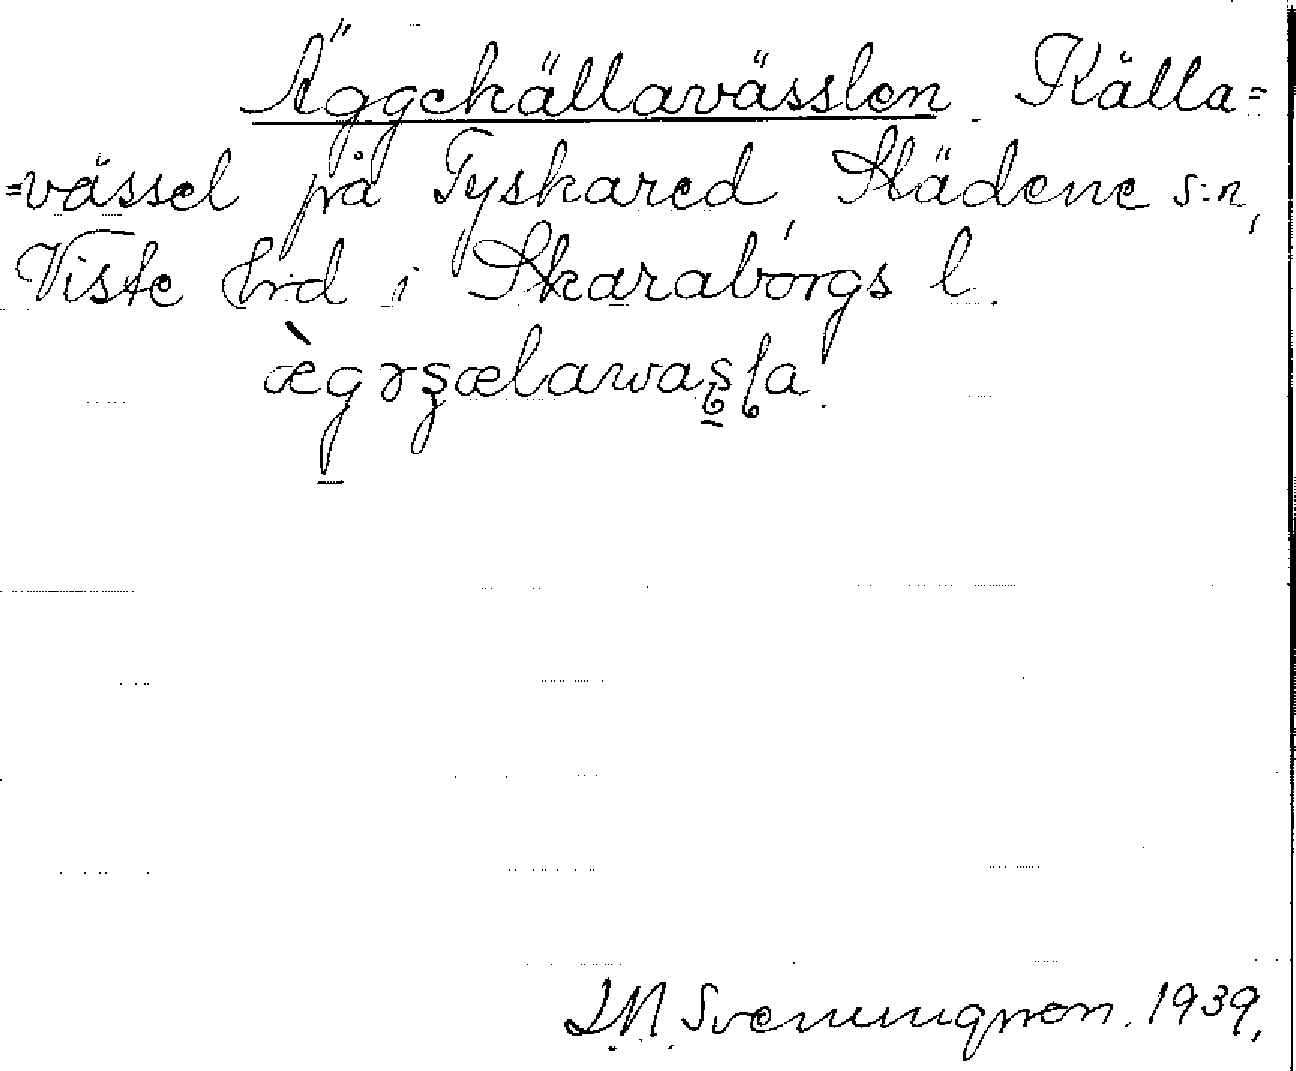 Äggekällavässlen. Källa=
=vässel på Tyskared, Slädene s:n,
Viste hrd i Skaraborgs l.
ægɤʂælawaʂɭa.
J.N. Svenningson. 1939.